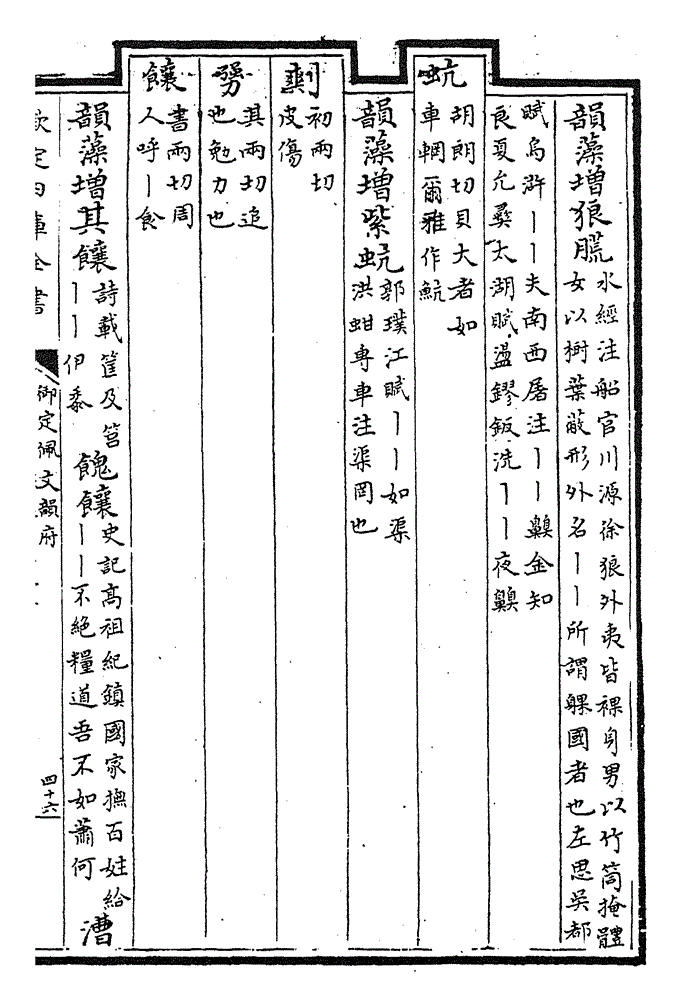 韻藻增狼䐠
水經注船官川源徐狼外夷皆裸身男以竹筒掩體
女以樹葉蔽形外名丨丨所謂躶國者也左思吳都
賦烏滸丨丨夫南西屠注丨丨齅金知
良夏允彝太湖賦盪鏐鈑洗丨丨夜齅
蚢
胡朗切貝大者如
車輞爾雅作魧
韻藻增紫蚢
郭璞江賦丨丨如渠
洪蚶専車注渠罔也
㓽
初兩切
皮傷
勥
其兩切追
也勉力也
饟
書兩切周
人呼丨食
韻藻增其饟
詩載筐及筥
丨丨伊黍
餽饟
史記高祖紀鎮國家撫百姓給
丨丨不絕糧道吾不如蕭何
漕
欽定四庫全書
御定佩文韻府
四十六